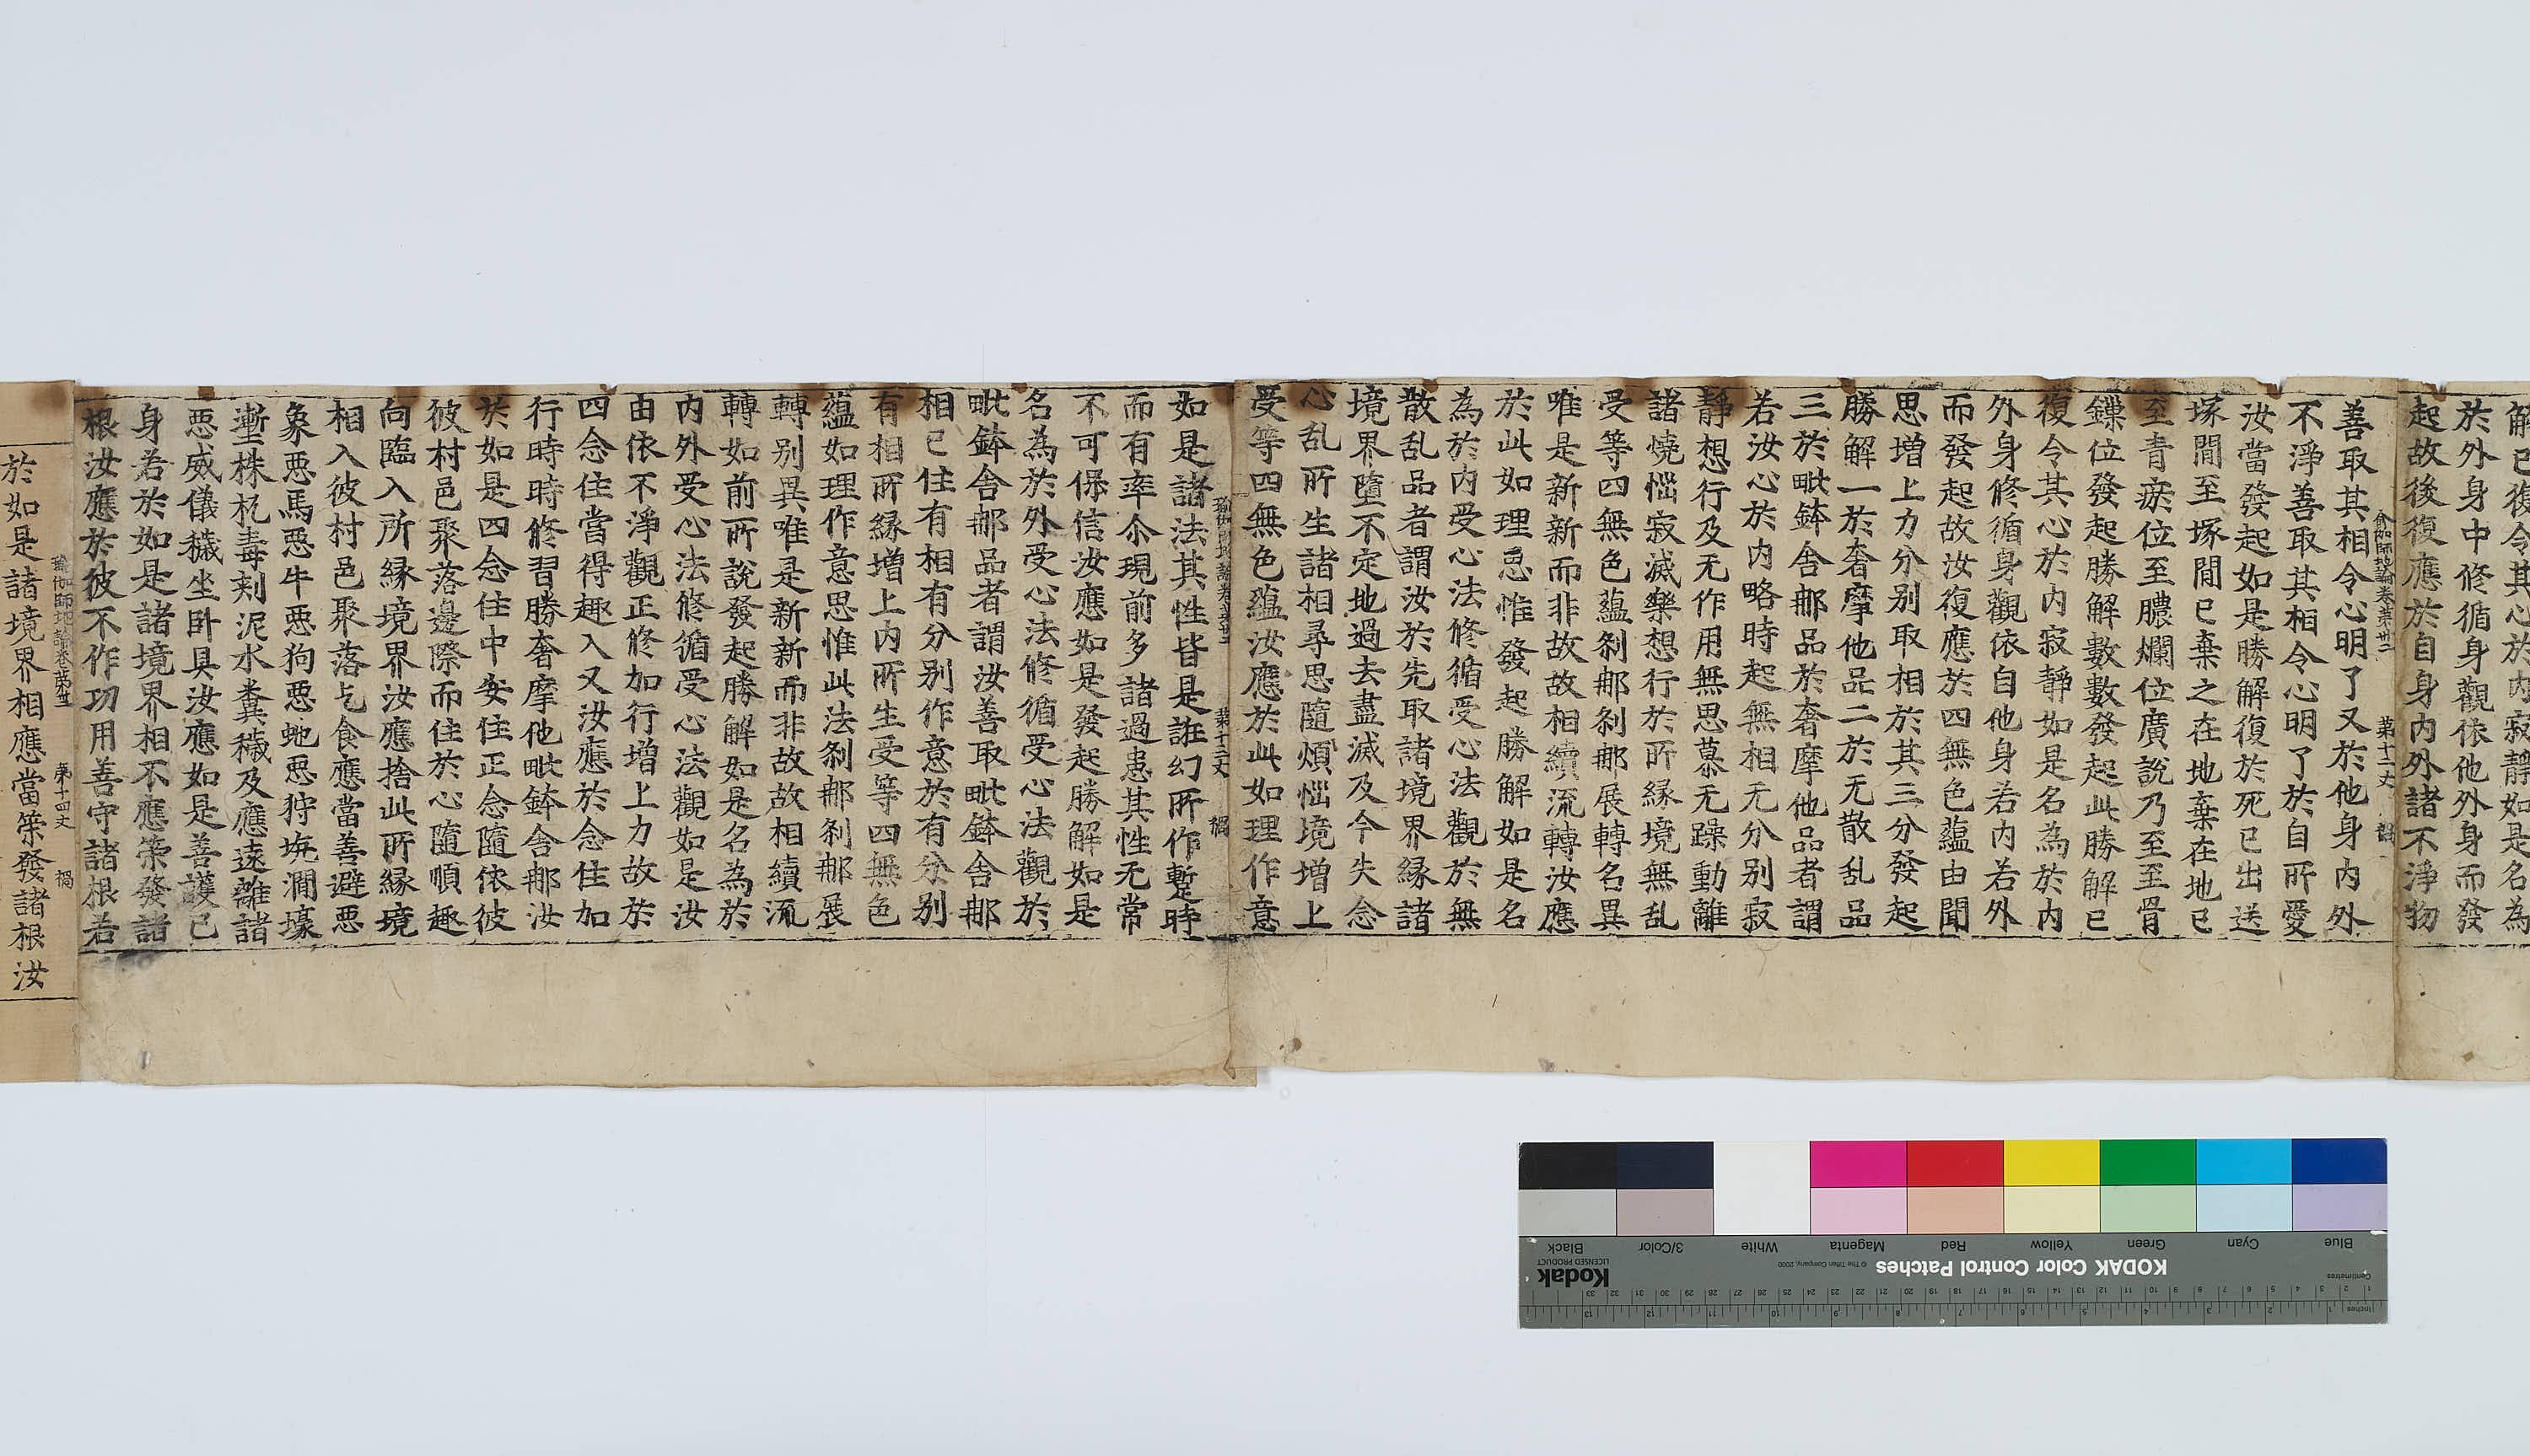 解已復令其心於內寂靜如是名為
於外身中修循身觀依他外身而發
起故後復應於自身內外諸不淨物
瑜伽師地論卷第卅二 第十二丈 禍
善取其相令心明了又於他身內外
不淨善取其相令心明了於自所愛
汝當發起如是勝解復於死已出送
塚間至塚間已棄之在地棄在地已
至青瘀位至膿爛位廣說乃至至骨
鏁位發起勝解數數發起此勝解已
復令其心於內寂靜如是名為於內
外身修循身觀依自他身若內若外
而發起故汝復應於四無色蘊由聞
思增上力分別取相於其三分發起
勝解一於奢摩他品二於无散乱品
三於毗鉢舍那品於奢摩他品者謂
若汝心於內略時起無相无分別寂
靜想行及无作用無思慕无躁動離
諸燒惱寂滅樂想行於所緣境無乱
受等四無色蘊刹那刹那展轉名異
唯是新新而非故故相續流轉汝應
於此如理思惟發起勝解如是名
為於內受心法修循受心法觀於無
散乱品者謂汝於先取諸境界緣諸
境界墮不定地過去盡滅及今失念
心乱所生諸相尋思隨煩惱境增上
受等四無色蘊汝應於此如理作意
瑜伽師地論卷第卅二 第十三丈 禍
如是諸法其性皆是誑幻所作蹔時
而有率尒現前多諸過患其性无常
不可保信汝應如是發起勝解如是
名為於外受心法修循受心法觀於
毗鉢舍那品者謂汝善取毗鉢舍那
相已住有相有分別作意於有分別
有相所緣增上內所生受等四無色
蘊如理作意思惟此法刹那刹那展
轉別異唯是新新而非故故相續流
轉如前所說發起勝解如是名為於
內外受心法修循受心法觀如是汝
由依不淨觀正修加行增上力故於
四念住當得趣入又汝應於念住加
行時時修習勝奢摩他毗鉢舍那汝
於如是四念住中安住正念隨依彼
彼村邑聚落邊際而住於心隨順趣
向臨入所緣境界汝應捨此所緣境
相入彼村邑聚落乞食應當善避惡
象惡馬惡牛惡狗惡虵惡狩坑澗壕
塹株杌毒刺泥水糞穢及應遠離諸
惡威儀穢坐卧具汝應如是善護已
身若於如是諸境界相不應策發諸
根汝應於彼不作功用善守諸根若
瑜伽師地論卷第卅二 第十四丈 禍
於如是諸境界相應當策發諸根汝